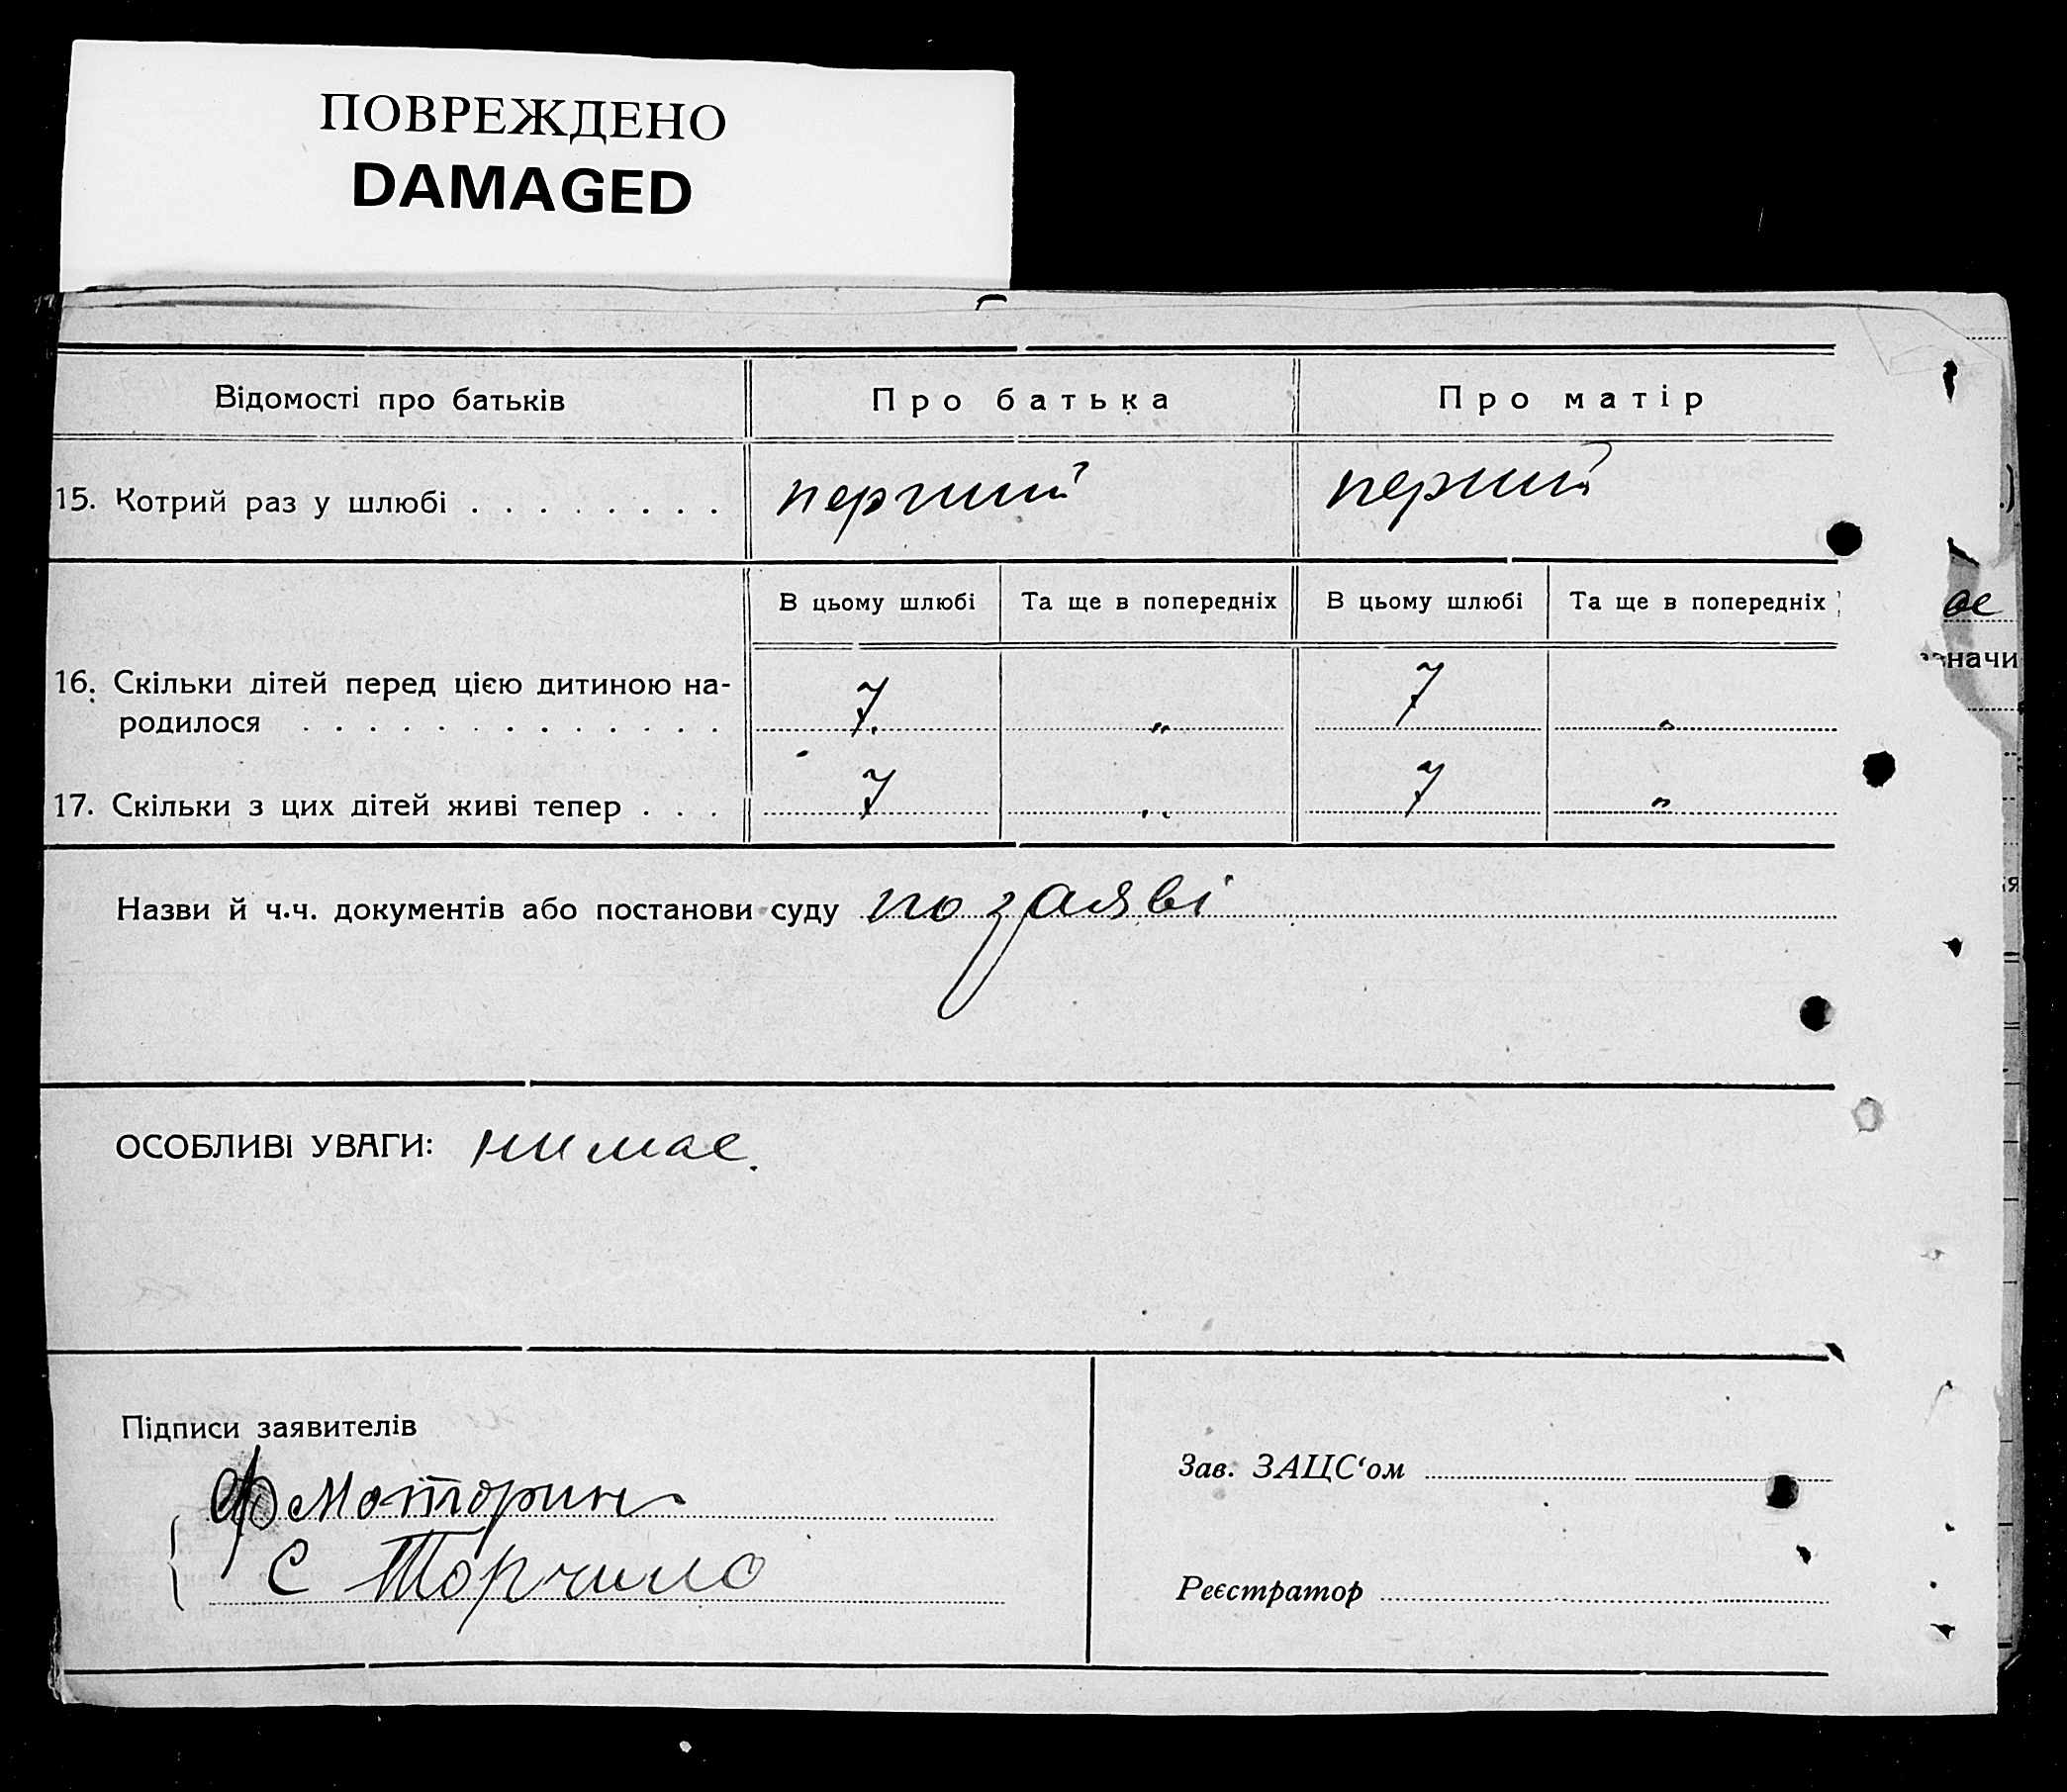 ПОВРЕЖДЕНО
DAMAGED
Відомості про батьків
Про батька
Про матір
15. Котрий раз у шлюбі . . . . . . . .
перший
перший
В цьому шлюбі
Та ще в попередніх
В цьому шлюбі
Та ще в попередніх
16. Скільки дітей перед цією дитиною на-
родилося . . . . . . . . . . . . .
7
"
7
"
17. Скільки з цих дітей живі тепер . . .
7
"
7
"
Назви й ч.ч. документів або постанови суду по заяві
ОСОБЛИВІ УВАГИ: нимає.
Підписи заявителів
Ф Моторин
С Торчило
Зав. ЗАЦС‘ом
Реєстратор